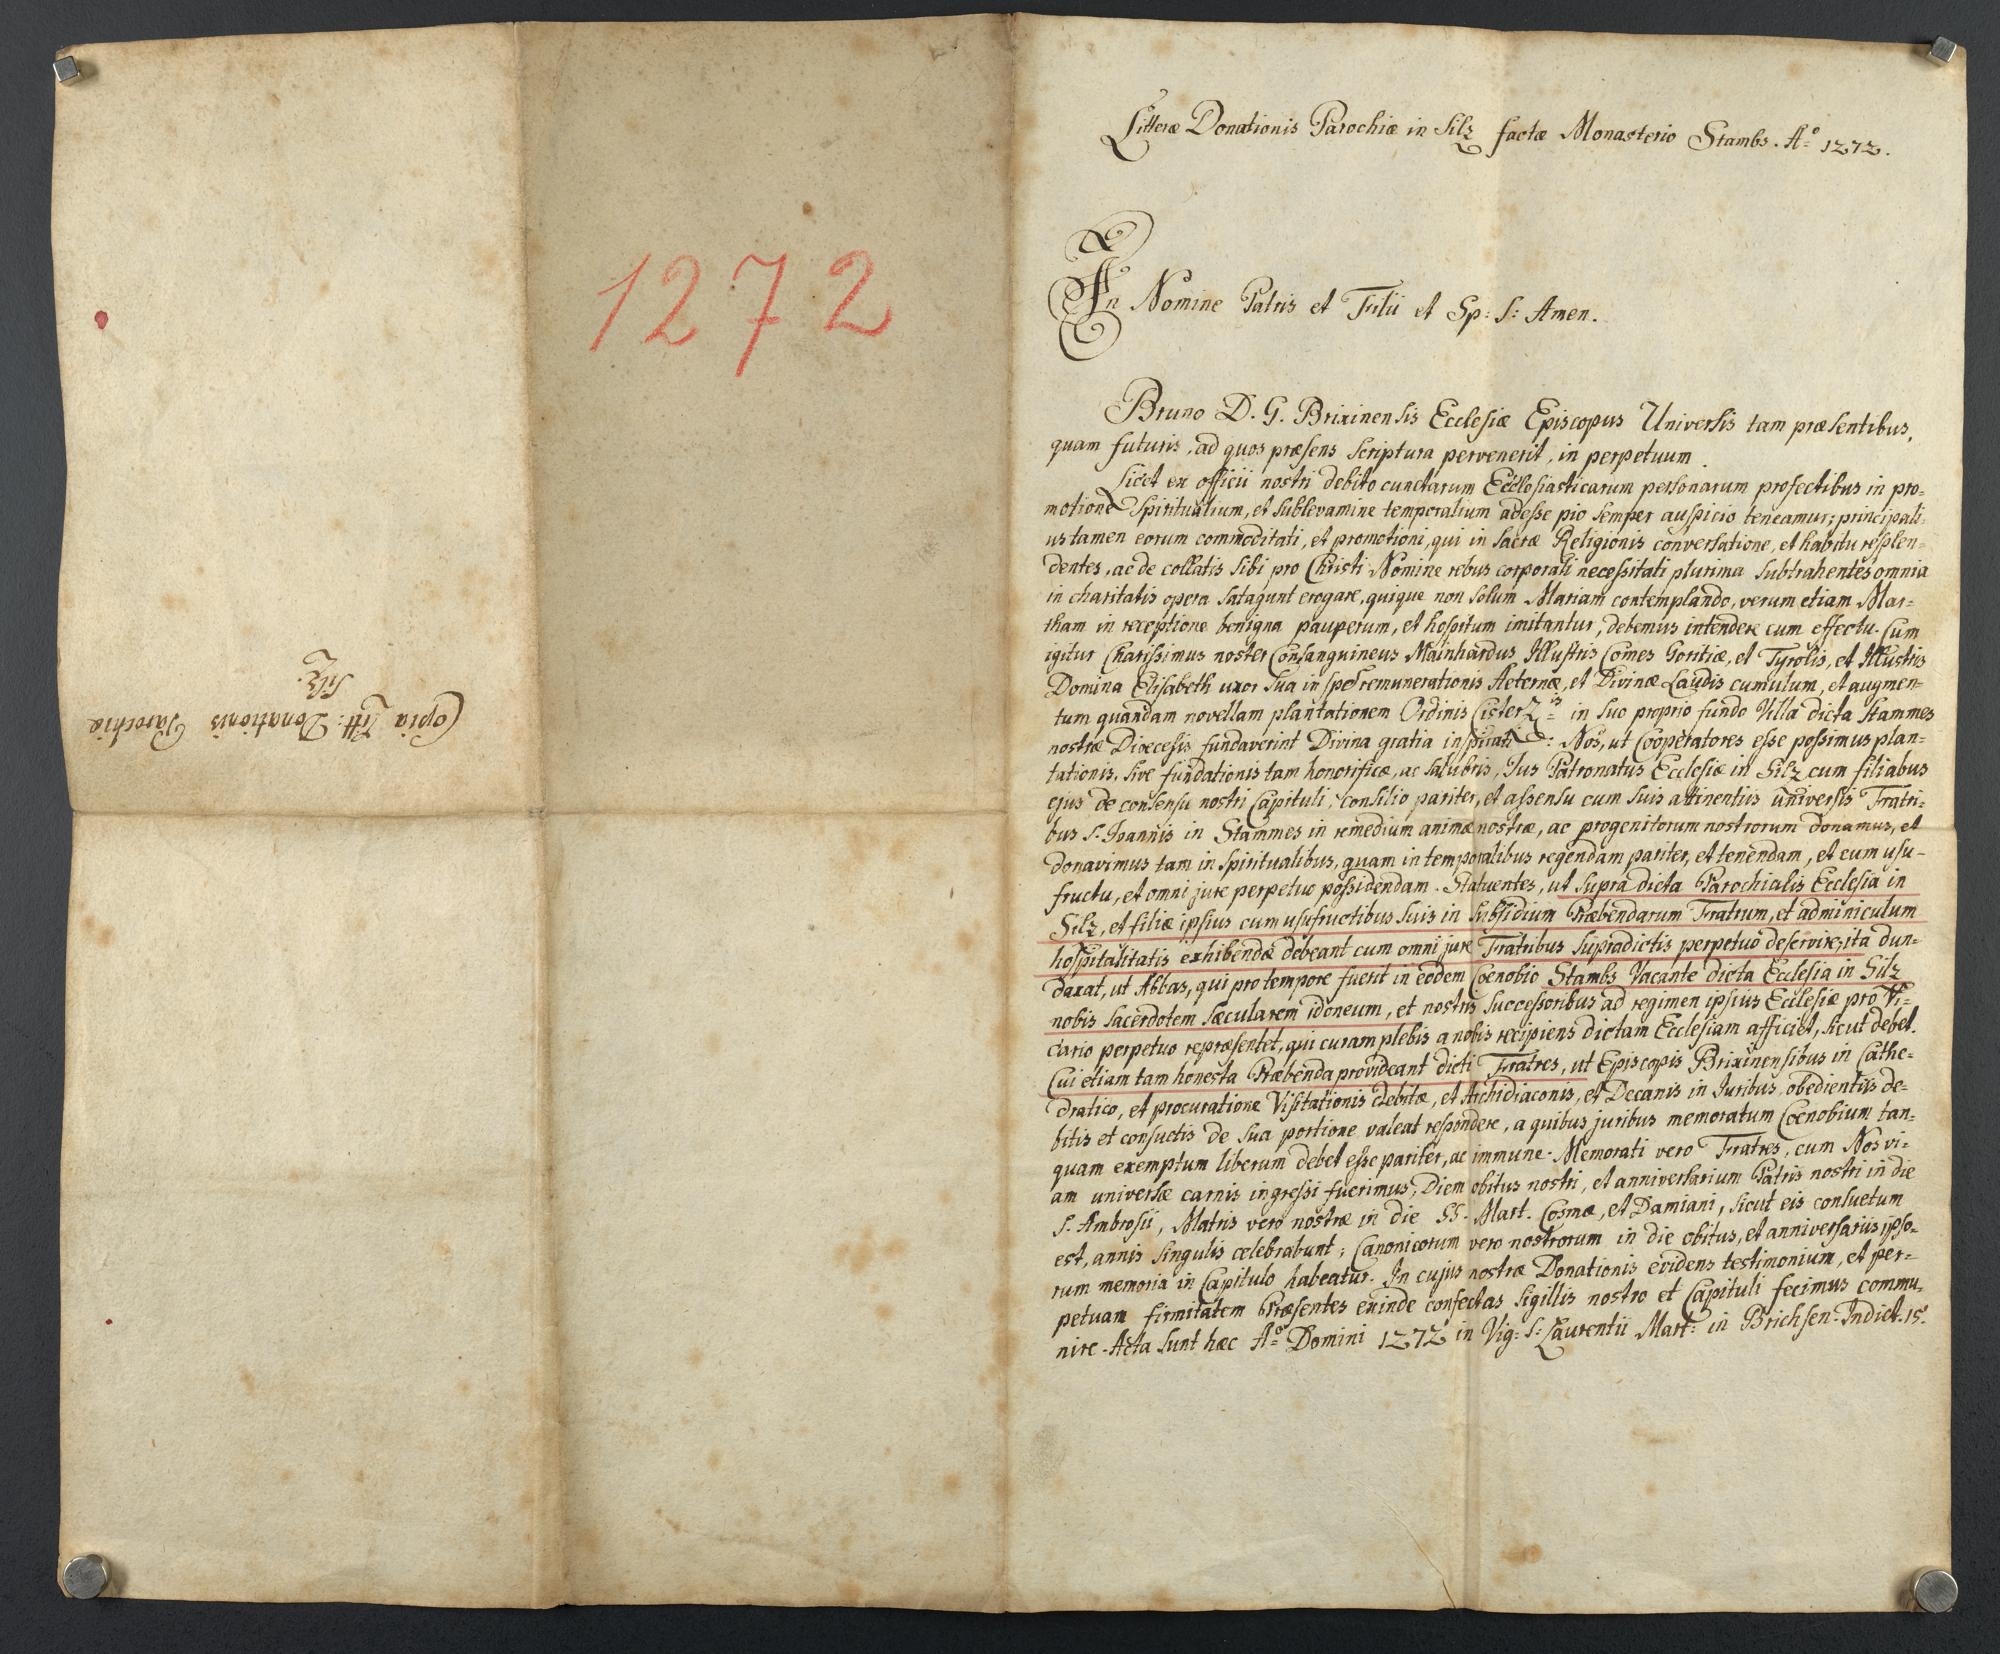 Copia Litt: Donationis Parochiæ
Silz.
1272
Litteræ Donationis Parochiæ in Silz factæ Monasterio Stambs. Aº 1272.
In Nomine Patris et Filii et Sp: S: Amen.
Bruno D. G. Brixinensis Ecclesiæ Episcopus Universis tam præsentibus,
quam futuris, ad quos præsens scriptura pervenerit, in perpetuum.
Licet ex officii nostri debito cunctarum Ecclesiasticarum personarum profectibus in pro=
motione Spiritualium, et sublevamine temporalium adesse pio semper auspicio teneamur; principali=
us tamen eorum commoditati, et promotioni, qui in sacræ Religionis conversatione, et habitu resplen=
dentes, ac de collatis sibi pro Christi Nomine rebus corporali necessitati plurima subtrahentes omnia
in charitatis opera satagunt erogare, quique non solum Mariam contemplando, verum etiam Mar=
tham in receptione benigna pauperum, et hospitum imitantur, debemus intendere cum effectu. Cum
igitur Charissimus noster Consanguineus Mainhardus Illustris Comes Goritiæ, et Tyrolis, et Illustris
Domina Elisabeth uxor sua in spe remunerationis Aeternæ, et Divinæ Laudis cumulum, et augmen=
tum quandam novellam plantationem Ordinis Cisterz: in suo proprio fundo Villa dicta Stammes
nostræ Diœcesis fundaverint Divina gratia inspirati: Nos, ut Cooperatores esse possimus plan=
tationis, sive fundationis tam honorificæ, ac salubris, Jus Patronatus Ecclesiæ in Silz cum filiabus
ejus de consensu nostri Capituli, consilio pariter, et assensu cum suis attinentiis universis Fratri=
bus S. Joannis in Stammes in remedium animæ nostræ, ac progenitorum nostrorum donamus, et
donavimus tam in spiritualibus, quam in temporalibus regendam pariter, et tenendam, et cum usu=
fructu, et omni jure perpetuo possidendam. Statuentes, ut supra dicta Parochialis Ecclesia in
Silz, et filiæ ipsius cum usufructibus suis in subsidium Præbendarum Fratrum, et adminiculum
hospitalitatis exhibendæ debeant cum omni jure Fratribus supradictis perpetuò deservire, ita dun=
daxat, ut Abbas, qui pro tempore fuerit in eodem Cœnobio Stambs Vacante dicta Ecclesia in Silz
nobis sacerdotem sæcularem idoneum, et nostris successoribus ad regimen ipsius Ecclesiæ pro Vi=
cario perpetuo repræsentet, qui curam plebis a nobis recipiens dictam Ecclesiam afficiet, sicut debet.
Cui etiam tam honesta Præbenda provideant dicti Fratres, ut Episcopis Brixinensibus in Cathe=
dratico, et procuratione Visitationis debitæ, et Archidiaconis, et Decanis in Juribus, obedientiis de=
bitis et consuetis de sua portione valeat respondere, a quibus juribus memoratum Cœnobium tan=
quam exemptum liberum debet esse pariter, ac immune. Memorati vero Fratres, cum Nos vi=
am universæ carnis ingressi fuerimus, Diem obitus nostri, et anniversarium Patris nostri in die
S. Ambrosii, Matris vero nostræ in die SS. Mart. Cosmæ, et Damiani, sicut eis consuetum
est, annis singulis celebrabunt; Canonicorum vero nostrorum in die obitus, et anniversariis ipso=
rum memoria in Capitulo habeatur. In cujus nostræ Donationis evidens testimonium, et per=
petuam firmitatem Præsentes exinde confectas sigillis nostro et Capituli fecimus commu=
nire. Acta sunt hæc Aº Domini 1272 in Vig: S: Laurentii Mart: in Brichsen. Indict. 15.